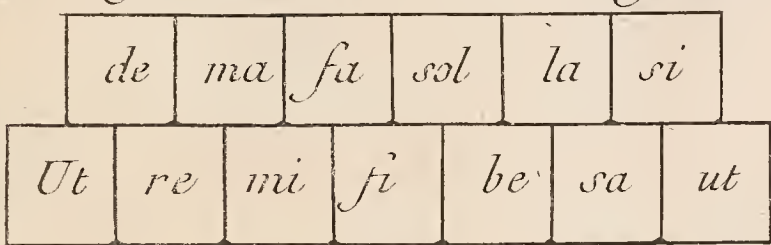 de ma fa sol la si
Ut re mi fi be sa ut